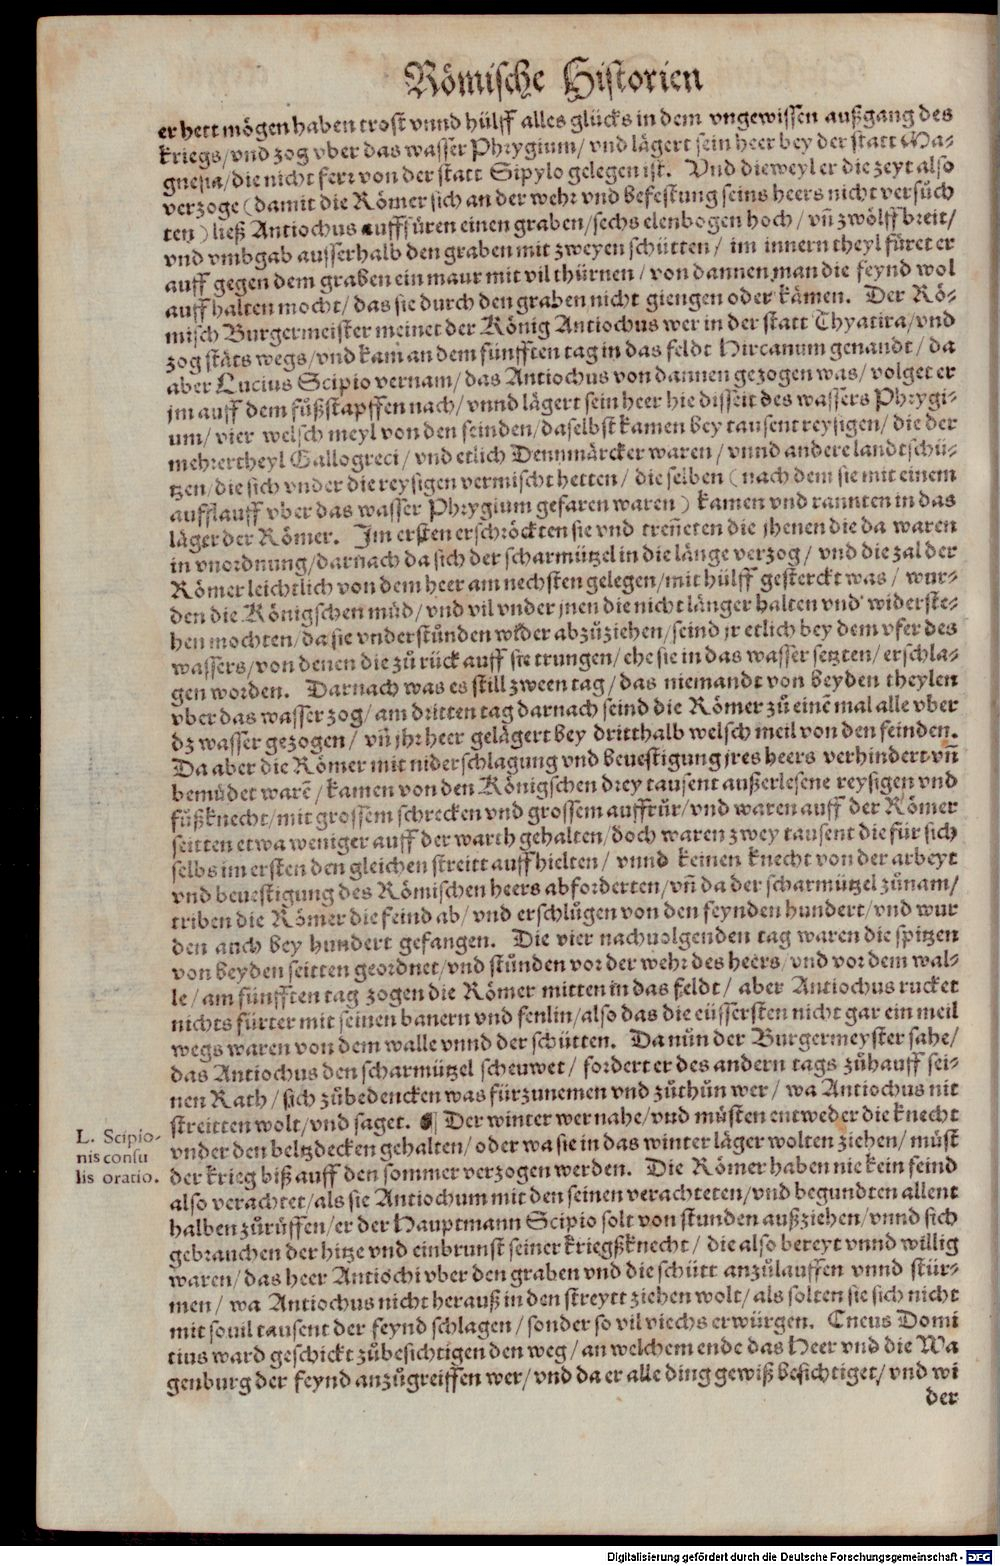 Römische Historien
er hett mögen haben trost vnnd hülff alles glücks in dem vngewissen außgang des
kriegs/vnd zog vber das wasser Phrygium/ vnd lägert sein heer bey der statt Ma-
gnesia/die nicht ferr von der statt Sipylo gelegen ist. Vnd dieweyl er die zeyt also
verzoge (damit die Römer sich an der wehr vnd befestung seins heers nicht versůch
ten) ließ Antiochus aufffüren einen graben/sechs elenbogen hoch/ vñ zwölff breit/
vnd vmbgab ausserhalb den graben mit zweyen schütten/ im innern theyl füret er
auff gegen dem graben ein maur mit vil thürnen/ von dannen man die feynd wol
auff halten mocht/ das sie durch den graben nicht giengen oder kämen. Der Rö-
misch Burgermeister meinet der König Antiochus wer in der statt Thyatira/vnd
zog stäts wegs/vnd kam an dem fünfften tag in das feldt Hircanum genandt/ da
aber Lucius Scipio vernam/das Antiochus von dannen gezogen was/ volget er
jm auff dem fůßstapffen nach/ vnnd lägert sein heer hie disseit des wassers Phrygi-
um/ vier welsch meyl von den feinden/daselbst kamen bey tausent reysigen/ die der
mehrertheyl Gallogreci/ vnd etlich Dennmärcker waren/ vnnd andere landtschü-
tzen/die sich vnder die reysigen vermischt hetten/ die selben (nach dem sie mit einem
aufflauff vber das wasser Phrygium gefaren waren) kamen vnd rannten in das
läger der Römer. Im ersten erschröckten sie vnd treñeten die jhenen die da waren
in vnordnung/darnach da sich der scharmützel in die länge verzog/ vnd die zal der
Römer leichtlich von dem heer am nechsten gelegen/mit hülff gesterckt was/ wur-
den die Königschen müd/vnd vil vnder jnen die nicht länger halten vnd widerste-
hen mochten/da sie vnderstůnden wider abzůziehen/seind jr etlich bey dem vfer des
wassers/von denen die zů rück auff sie trungen/ehe sie in das wasser setzten/erschla-
gen worden. Darnach was es still zween tag/das niemandt von beyden theylen
vber das wasser zog/am dritten tag darnach seind die Römer zů einē mal alle vber
dz wasser gezogen/ vñ jhr heer gelägert bey dritthalb welsch meil von den feinden.
Da aber die Römer mit niderschlagung vnd beuestigung jres heers verhindert vñ
bemüdet warē/kamen von den Königschen drey tausent außerlesene reysigen vnd
fůßknecht/mit grossem schrecken vnd grossem auffrůr/vnd waren auff der Römer
seitten etwa weniger auff der warth gehalten/doch waren zwey tausent die für sich
selbs im ersten den gleichen streitt auffhielten/ vnnd keinen knecht von der arbeyt
vnd beuestigung des Römischen heers abforderten/vñ da der scharmützel zůnam/
triben die Römer die feind ab/vnd erschlůgen von den feynden hundert/vnd wur
den auch bey hundert gefangen. Die vier nachuolgenden tag waren die spitzen
von beyden seitten geordnet/vnd stůnden vor der wehr des heers/vnd vor dem wal-
le/am fünfften tag zogen die Römer mitten in das feldt/ aber Antiochus rucket
nichts fürter mit seinen banern vnd fenlin/also das die eüssersten nicht gar ein meil
wegs waren von dem walle vnnd der schütten. Da nůn der Burgermeyster sahe/
das Antiochus den scharmützel scheuwet/ fordert er des andern tags zůhauff sei-
nen Rath/sich zůbedencken was fürzunemen vnd zůthůn wer/ wa Antiochus nit
streitten wolt/vnd saget. ¶ Der winter wer nahe/vnd můsten entweder die knecht
L. Scipio-
nis consu
lis oratio.
vnder den beltzdecken gehalten/oder wa sie in das winter läger wolten ziehen/můst
der krieg biß auff den sommer verzogen werden. Die Römer haben nie kein feind
also verachtet/als sie Antiochum mit den seinen verachteten/vnd begundten allent
halben zůrůffen/er der Hauptmann Scipio solt von stunden außziehen/vnnd sich
gebrauchen der hitze vnd einbrunst seiner kriegßknecht/ die also bereyt vnnd willig
waren/das heer Antiochi vber den graben vnd die schütt anzůlauffen vnnd stür-
men/ wa Antiochus nicht herauß in den streytt ziehen wolt/als solten sie sich nicht
mit souil tausent der feynd schlagen/sonder so vil viechs erwürgen. Cneus Domi
tius ward geschickt zůbesichtigen den weg/an welchem ende das Heer vnd die Wa
genburg der feynd anzůgreiffen wer/vnd da er alle ding gewiß besichtiget/vnd wi
der
Digitalisierung gefördert durch die Deutsche Forschungsgemeinschaft - DFG